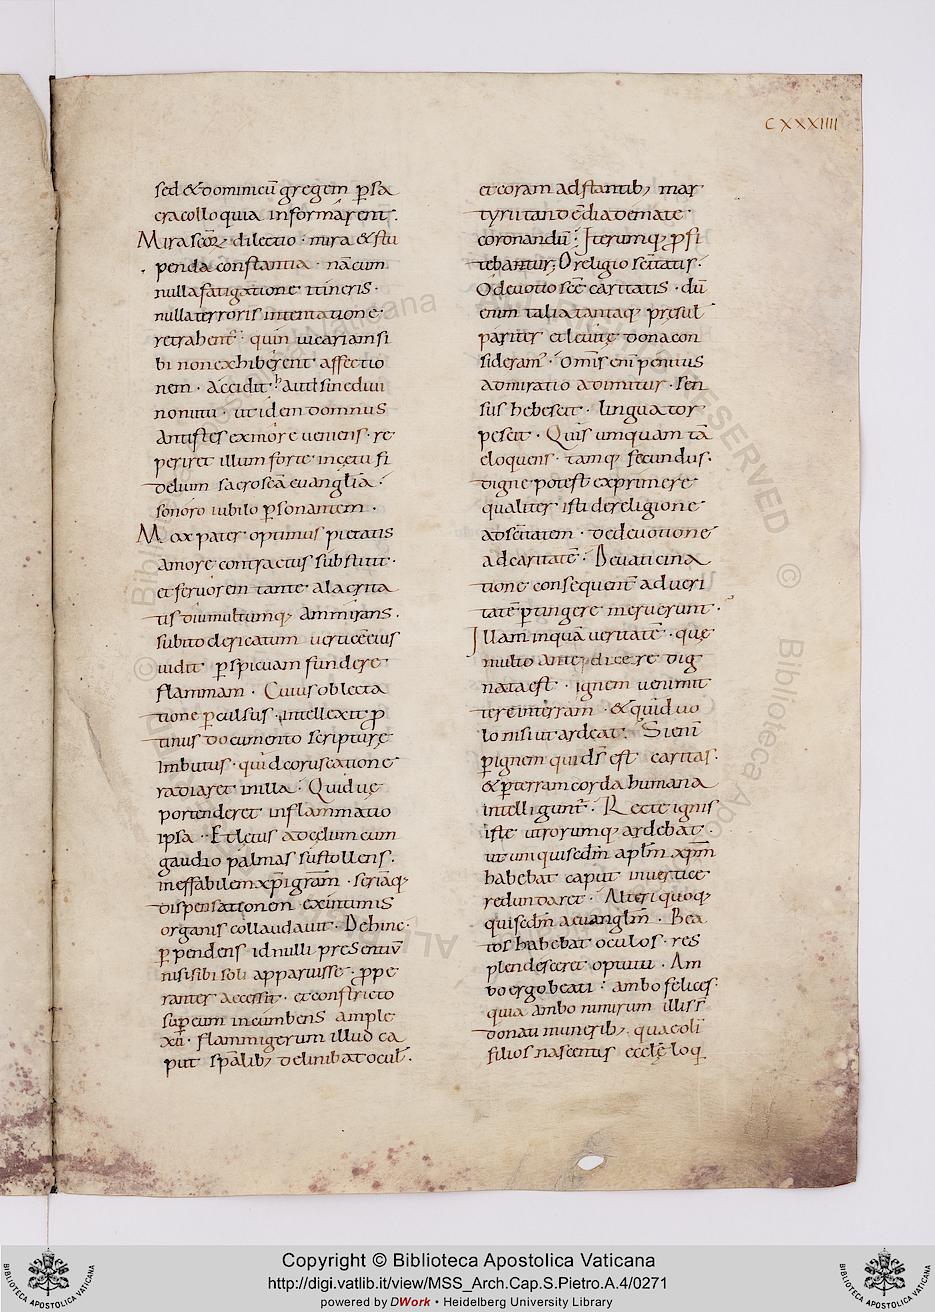 CXXXIIII
sed & dominicū gregem ꝑ sa
cra colloquia informarent.
Mira scōꝝ dilectio · mira & stu
penda constantia · nā cum
nulla fatigatione itineris ·
nulla terroris intentatione
retrahent̄ · quin uicariam si
bi non exhiberent affectio
nem · Accidit · aūt
non · ut idem domnus
Antistes ex more ueniens · re
periret illum forte in cetu fi
delium sacroscā euanglīa ·
sonoro iubilo ꝑsonantem ·
Mox pater optimus pietatis
amore contractus substitit ·
et feruorem tante alacrita
tis diu multumqꝫ ammirans ·
subito clericatum uerticē eius
uidit ꝑspicuam fundere
flammam · Cuius oblecta
tione ꝑculsus · intellexit ꝓ
tinus documento scripturę
Imbutus · quid coruscatione
radiaret in illa · Quid uę
portenderet inflammatio
ipsa · Et lętus ad cęlum cum
gaudio palmas sustollens ·
ineffabilem xp̄i gratiam · seriāqꝫ
dispensationem ex intimis
organis collaudauit · Dehinc
ꝑpendens id nulli presentiū
nisi sibi soli apparuisse · ꝓpe
ranter accessit · et constricto
sup̄ eum incumbens ample
xu · flammigerum illud ca
put spālibꝫ delinibat oculi̅s ·
et coram adstantibꝫ mar
tyrii tandē diademate
coronandū · Iterumqꝫ ꝓfi
tebantur; O religio scītatis ·
O deuotio scē caritatis · dū
enim talia tantaqꝫ pręsul
pariter et leuitę dona con
sideram̄ · Omīs enī penitus
admiratio adimitur · Sen
sus hebescit · lingua tor
pescit · Quis umquam tā
eloquens · tamqꝫ fecundus ·
digne potest exprimere
qualiter isti de religione
ad scītatem · de deuotione
ad caritatē · De uaticina
tione consequenti ad ueri
tatē ꝑtingere meruerunt ·
Illam inquā ueritatē · quę
multo ante dicere dig
nata est · ignem ueni mit
tere in terram · & quid uo
lo nisi ut ardeat · Si enī
ꝑ ignem qui dś est caritas ·
& ꝑ terram corda humana
intelligunt̄ · Recte ignis
iste utrorumqꝫ ardebat ·
ut unī quisedm̄ aplm̄ xp̄m
habebat caput in uertice
redundaret · Alteri quoqꝫ
quisedm̄ aeuanglm̄ · Bea
tos habebat oculos · res
plendesceret optutu · Am
bo ergo beati · ambo felices ·
quia ambo nimirum illis s̄
donati muneribꝫ · qua coli
filios nascentis ecclę loq
Copyright © Biblioteca Apostolica Vaticana
http://digi.vatlib.it/view/MSS_Arch.Cap.S.Pietro.A.4/0271
powered by DWork • Heidelberg University Library